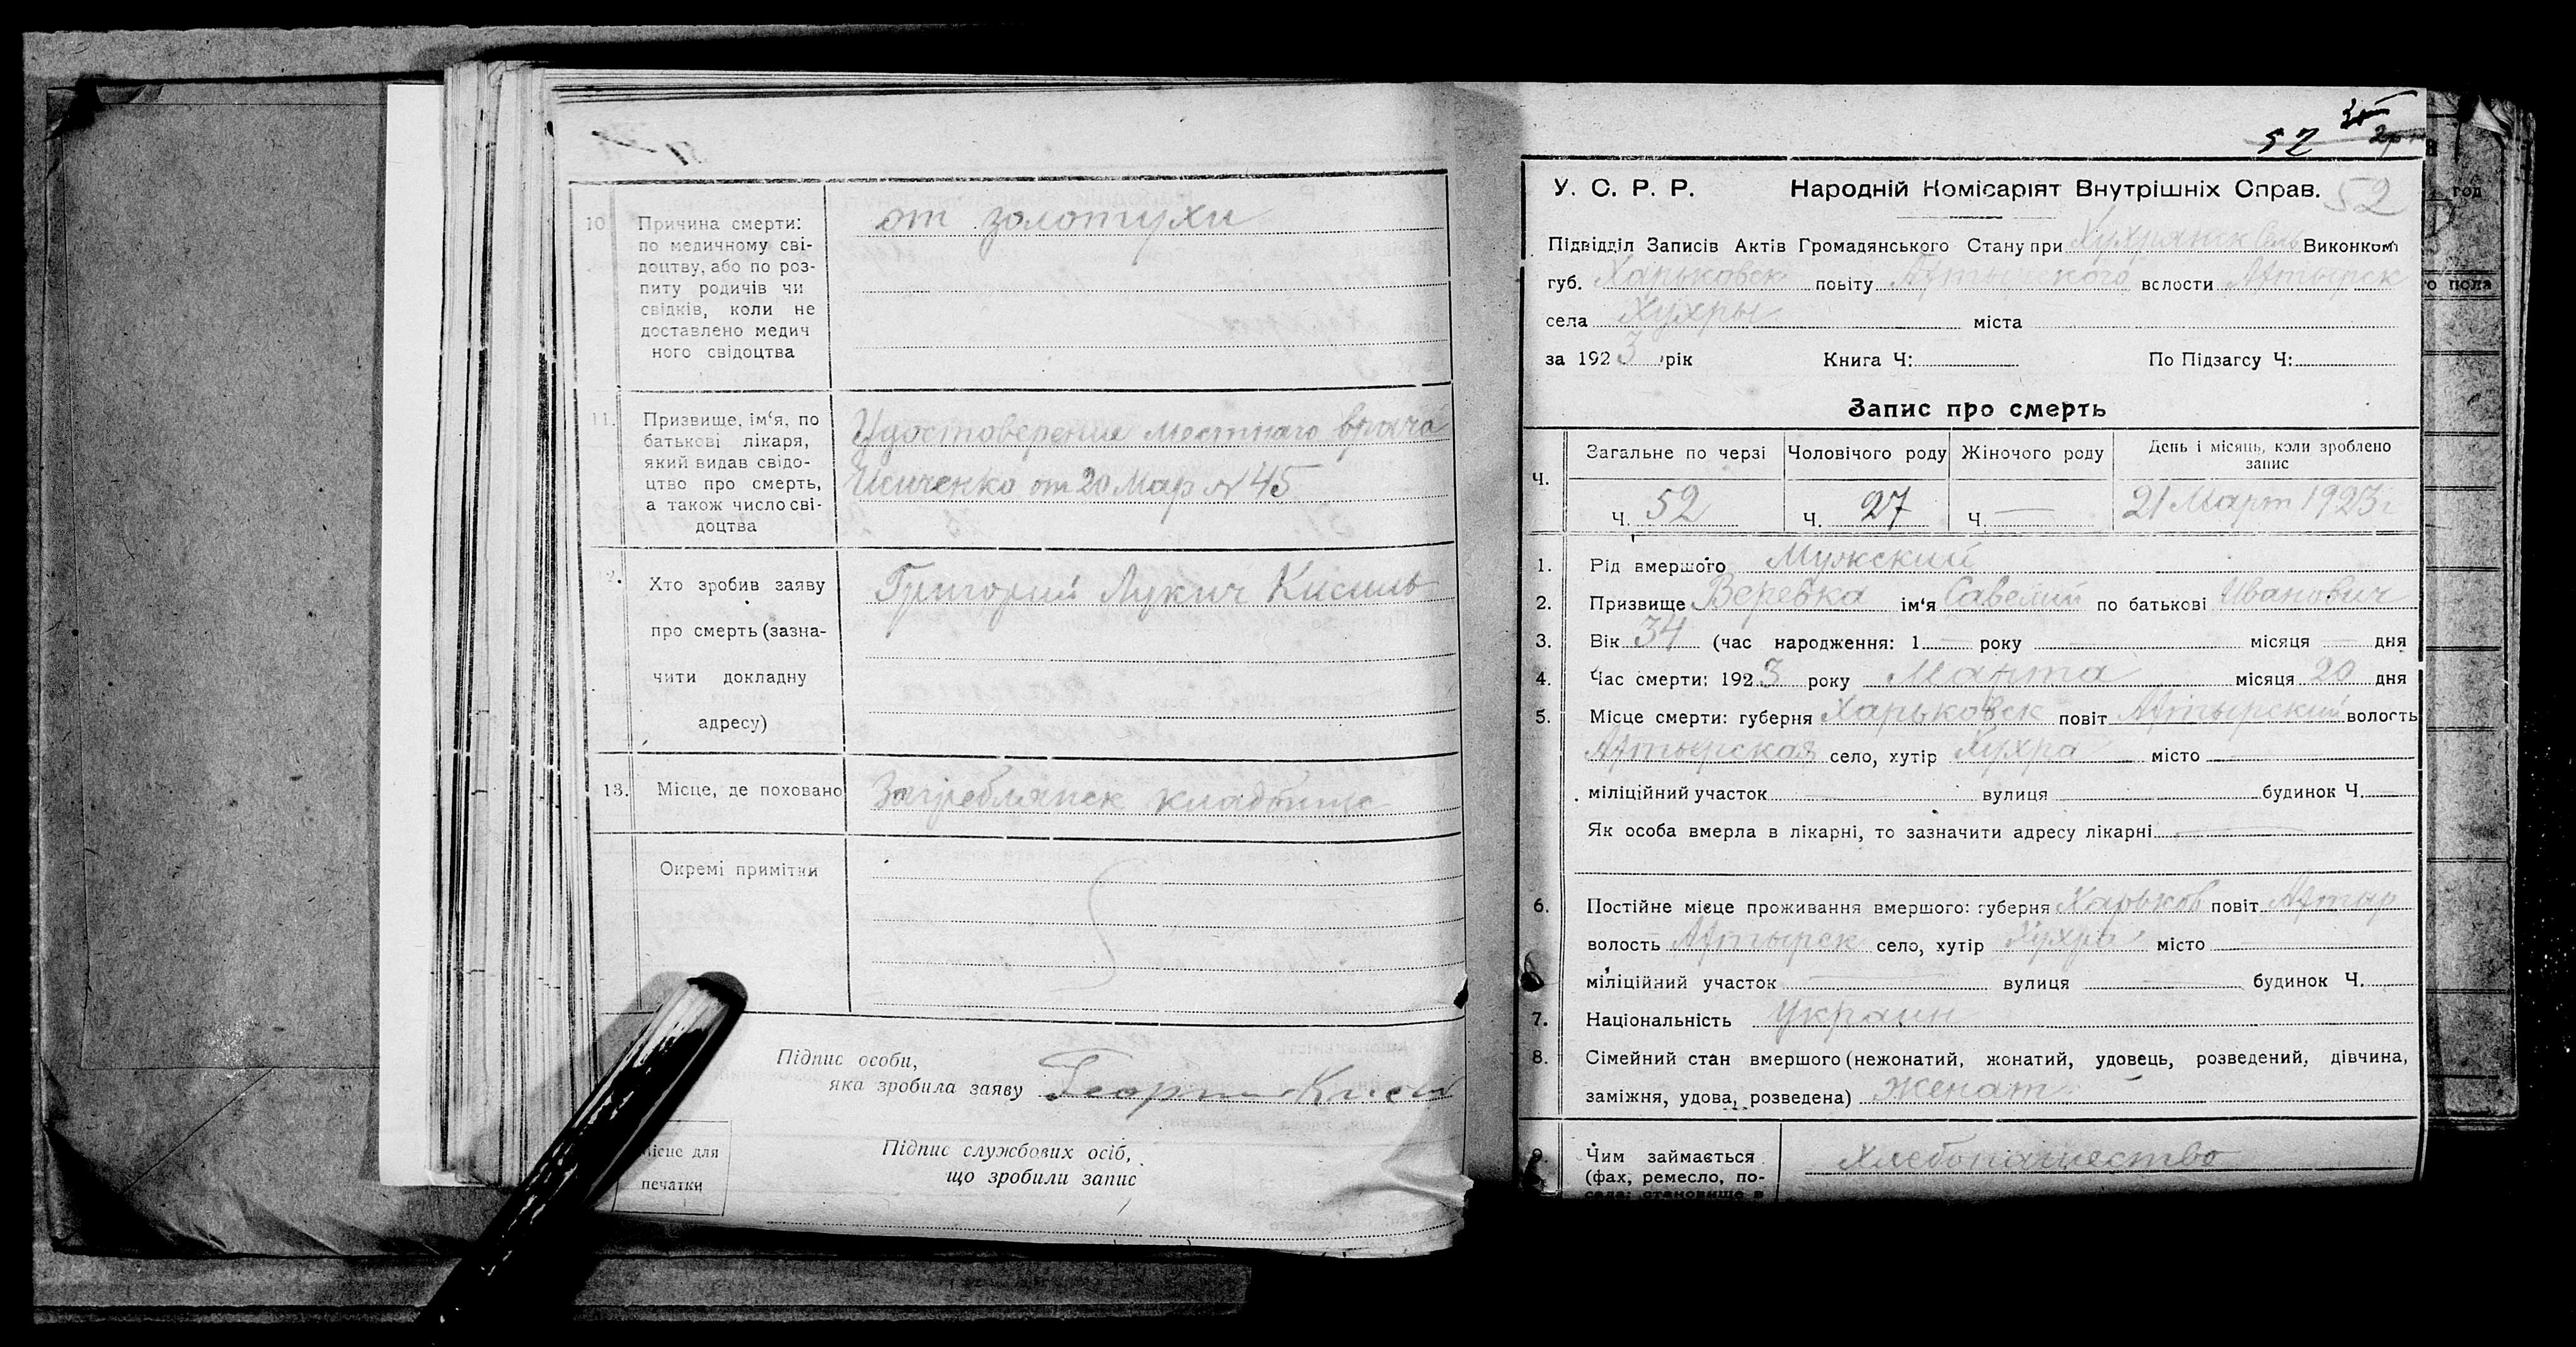 10. Причина смерти:
по медичному сві-
доцтву, або по роз-
питу родичів чи
свідків, коли не
доставлено медич
ного свідоцтва
от золотухи
11. Призвище, ім‘я, по
батькові лікаря,
який видав свідо-
цтво про смерть,
а також число сві-
доцтва
Удостоверение местнаго врача
от 20 Мар № 45
2. Хто зробив заяву
про смерть (зазна-
чити докладну
адресу)
Григорий Лукич Кисиль
13. Місце, де поховано
Загреблянск кладбище
Окремі примітки
Підпис особи,
яка зробила заяву
Місце для
печатки
Підпис службових осіб,
що зробили запис
52
У. С. Р. Р. Народній Комісаріят Внутрішніх Справ. 52
Підвідділ Записів Актів Громадянського Стану при Хухрянск Виконком
губ. Харьковск повіту Ахтырского велости Ахтырск
села Хухры міста
за 1923 рік Книга Ч: По Підзагсу Ч:
Запис про смерть
Ч. Загальне по черзі Чоловічого роду Жіночого роду День і місяць, коли зроблено
запис
Ч. 52 Ч. 27 Ч. — 21 Март 1923 г
1. Рід вмершого Мужский
2. Призвище Веревка ім‘я Савелий по батькові Иванович
3. Вік 34 (час народження: 1 — року — місяця — дня
4. Час смерти: 1923 року Марта місяця 20 дня
5. Місце смерти: губерня Харьковск повіт Ахтырский волость
Ахтырская село, хутір Хухра місто —
міліційний участок — вулиця — будинок Ч. —
Як особа вмерла в лікарні, то зазначити адресу лікарні —
6. Постійне місце проживання вмершого: губерня Харьков повіт Ахтыр
волость Ахтырск село, хутір Хухра місто —
міліційний участок — вулиця — будинок Ч.
7. Національність Украин
8. Сімейний стан вмершого (нежонатий, жонатий, удовець, розведений, дівчина,
заміжня, удова, розведена) Женат
9. Чим займається
(фах, ремесло, по-
сада; становище в
Хлебопашество
год
го пола